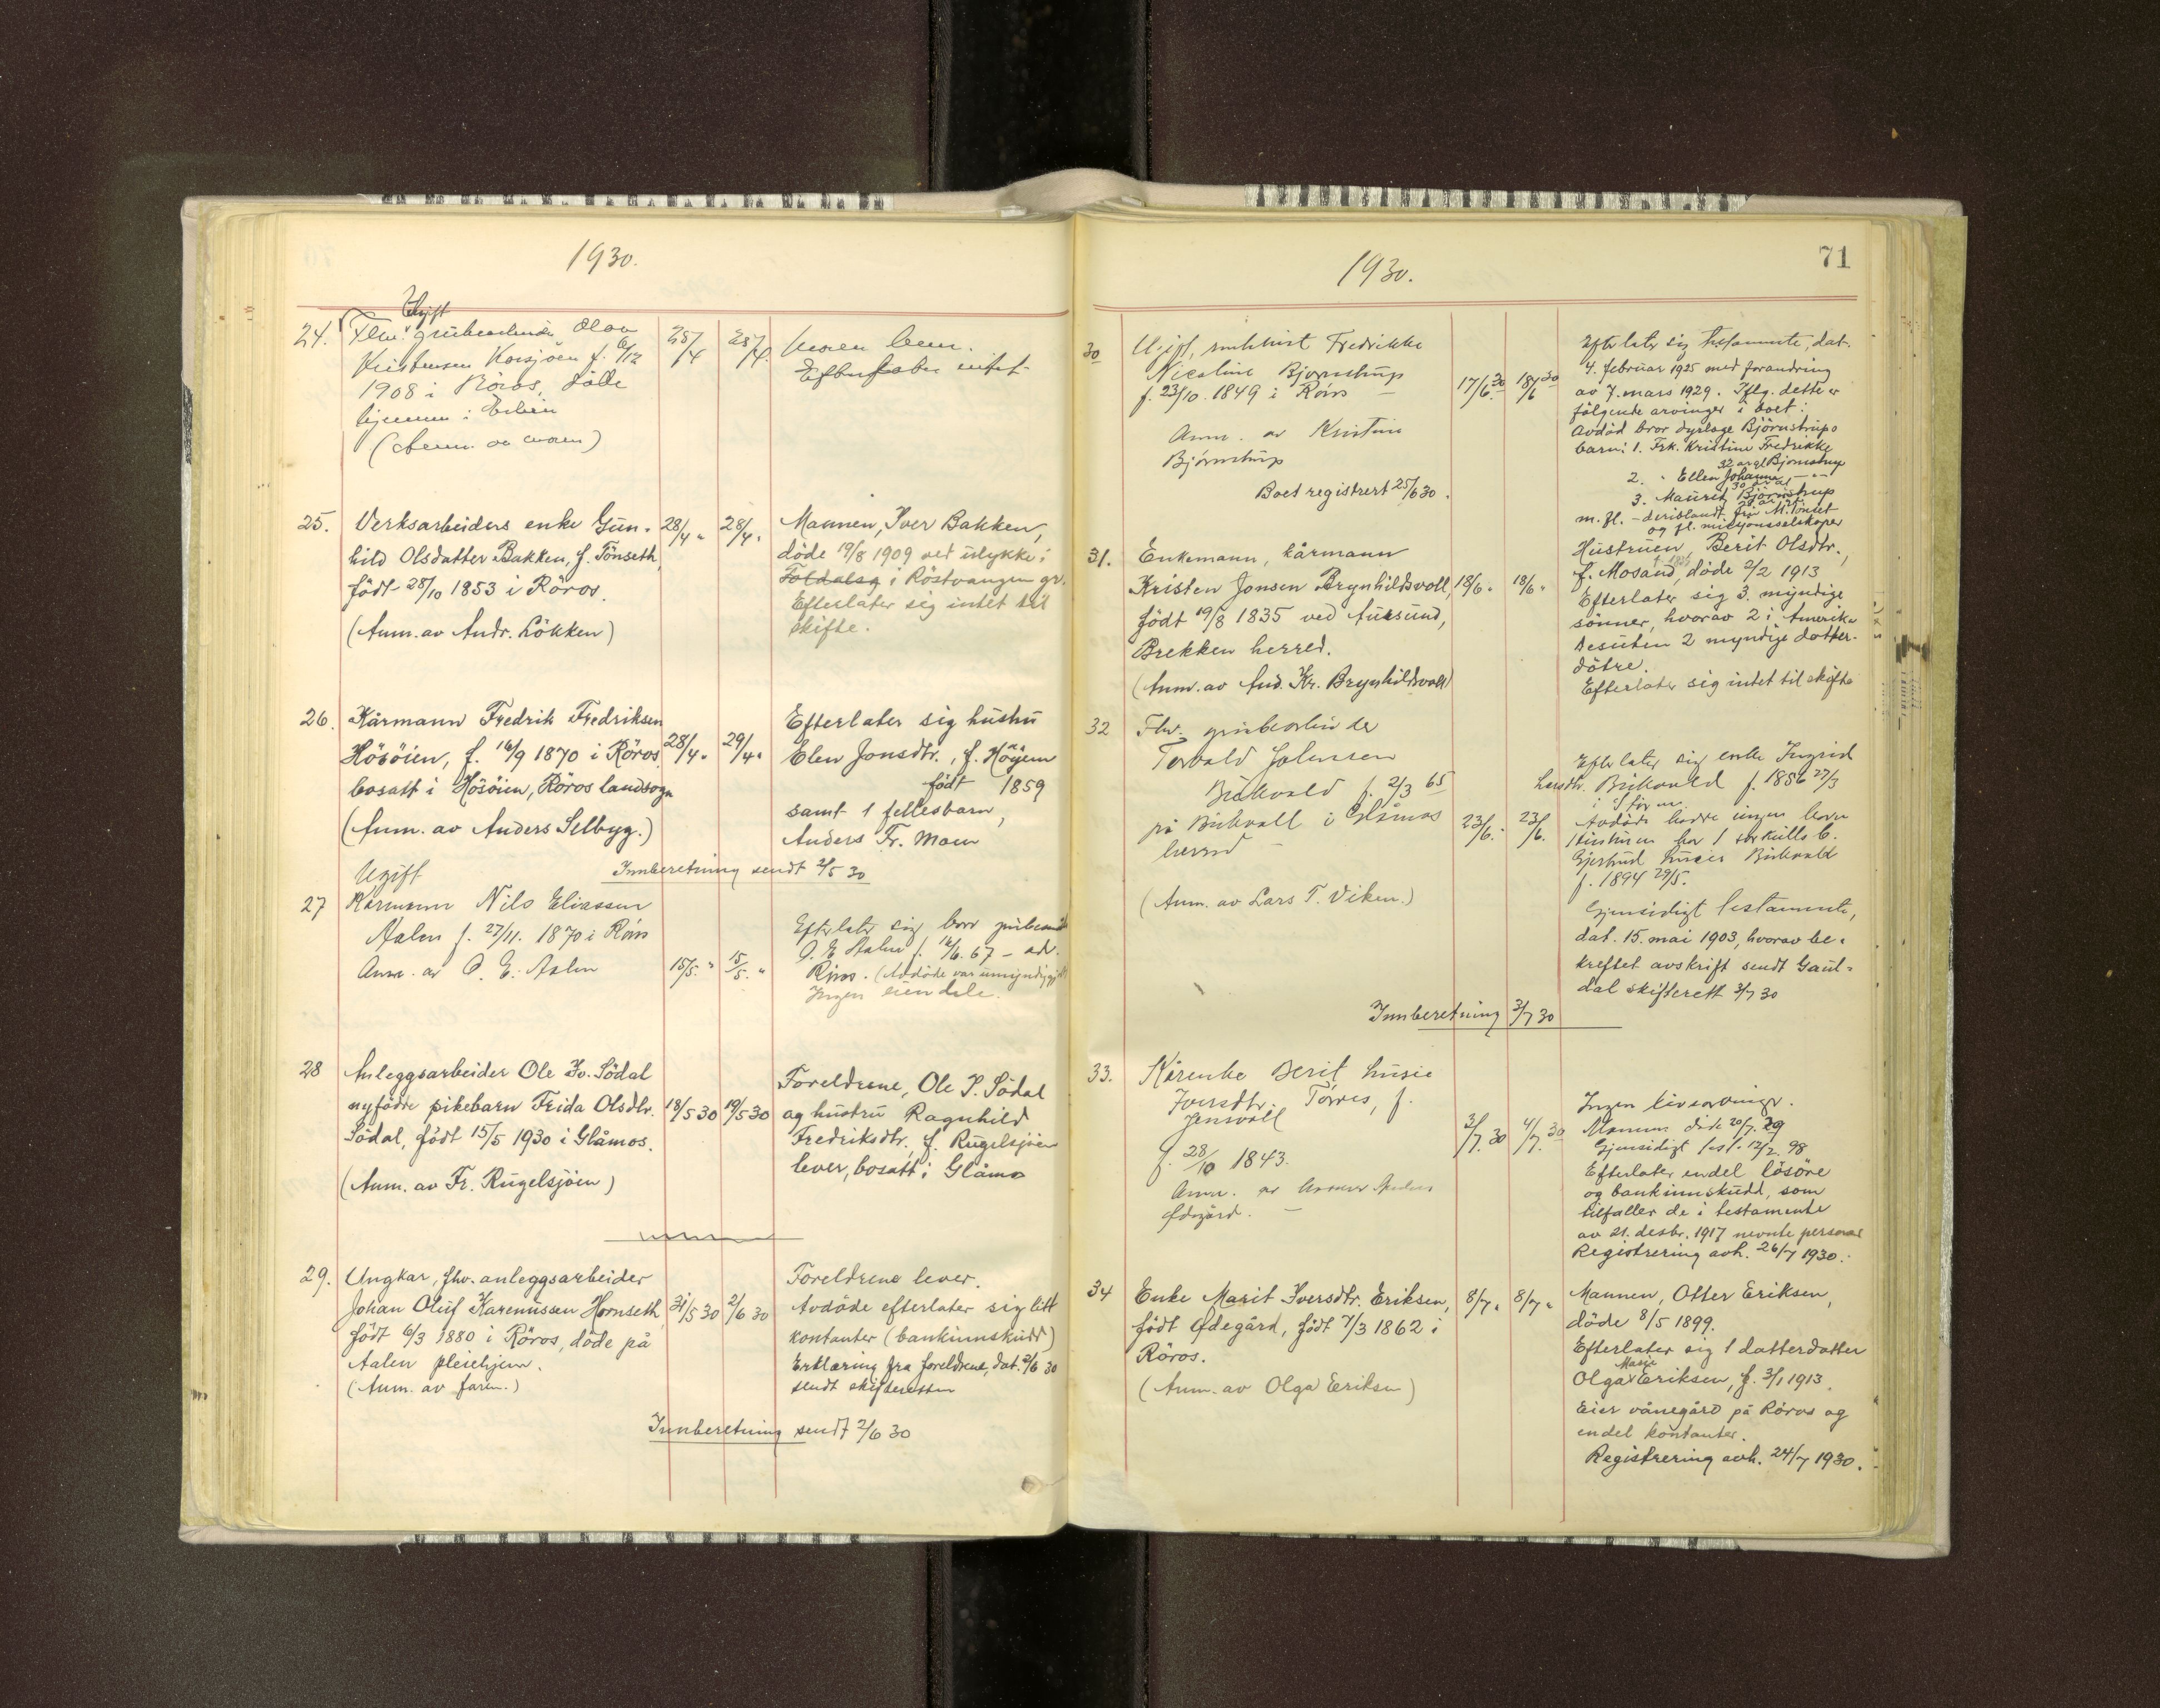 1930.
Ugift
24. Flw. grubearbeider Olav
Kristensen Korsjöen f. 6/12
1908 i Röros, döde
hjemme i
(Anm. av moren)
25/4
28/4.
Moren lever.
Efterlater intet.
25. Verksarbeiders enke Gun-
hild Olsdatter Bakken, f. Tönseth,
född 28/10 1853 i Röros.
(Anm. av Andr. Lökken)
28/4 "
28/4 "
Mannen, Iver Bakken,
döde 19/8 1909 ved ulykke i
Foldalsg i Röstvangen gr.
Efterlater sig intet til
skifte.
26. Kårmann Fredrik Fredriksen
Hösöien, f. 16/9 1870 i Röros
bosatt i Hösöien, Röros landsogn
(Anm. av Anders Selbyg.)
28/4 "
29/4 "
Efterlater sig hustru
Elen Jonsdtr., f. Höyem
født 1859
samt 1 fellesbarn,
Anders Fr. Moen
Innberetning sendt 2/5 30
Ugift
27 Kårmann Nils Eliassen
Aalen f. 27/11. 1870 i Röros
Anm. av O. E. Aalen
15/5. "
15/5. "
Efterlater sig bror
O. E. Aalen f. 16/6. 67 – adr.
Röros. (Avdöde var umyndiggj.
Ingen eiendele.
28 Anleggsarbeider Ole Iv. Södal
nyfödte pikebarn Frida Olsdtr.
Södal, född 15/5 1930 i Glåmos.
(Anm. av Fr. Rugelsjöen)
18/5 30
19/5 30
Foreldrene, Ole P. Södal
og hustru Ragnhild
Fredriksdtr. f. Rugelsjöen
lever, bosatt i Glåmos
29. Ungkar, fhv. anleggsarbeider
Johan Oluf Karenussen Hornseth,
född 6/3 1880 i Röros, döde på
Aalen pleiehjem.
(Anm. av faren.)
31/5 30
2/6 30
Foreldrene lever.
Avdöde efterlater sig litt
kontanter (bankinnskudd)
Erklæring fra foreldrene, dat. 2/6 30
sendt skifteretten
Innberetning sendt 2/6 30
71
1930.
30 Ugift, Fredrikke
Nicoline Bjørnstrup
f. 23/10. 1849 i Röros –
Anm. av Kristine
Bjørnstrup
Boet registrert 25/6 30.
17/6. 30
18/6 30
Efterlater sig testamente, dat.
4. februar 1925 med forandring
av 7. mars 1929. Iflg. dette er
følgende arvinger i boet:
Avdød bror dyrlæge Björnstrups
barn: 1. Frk. Kristine Fredrikke
32 år gl Bjørnstrup
2. " Ellen Johanne
30 år gl
3. Maurits Björnstrup
m. fl. – deriblandt
og fl. misjonsselskaper
31. Enkemann, kårmann
Kristen Jonsen Brynhildsvoll,
född 19/8 1835 ved Aursund,
Brekken herred.
(Anm. av And. Kr. Brynhildsvoll)
18/6 "
18/6 "
Hustruen, Berit Olsdtr.,
f. Mosand, döde 2/2 1913
Efterlater sig 3 myndige
sönner, hvorav 2 i Amerika
Desuten 2 myndige datter-
dötre.
Efterlater sig intet til skifte
32 Fhv. grubearbeider
Torvald Johnsen
Bukvold f. 2/3 65
på Bukvoll i Glåmos
herred –
(Anm. av Lars T. Viken.)
23/6. "
23/6.
Efterlater sig enke Ingrid
Larsdtr. Bukvold f. 1856 27/3
i Støren.
Avdöde hadde ingen barn
Hustruen har 1 særkulls b.
Gjertrud Bukvold
f. 1894 29/5.
Gjensidigt testamente,
dat. 15. mai 1903, hvorav be-
kreftet avskrift sendt Gaul-
dal skifterett 3/7 30
Innberetning 3/7 30
33. Kårenke Berit Lusie
Iversdtr. Törres, f.
Jensvoll
f. 28/10 1843.
Anm. av Anders
Ødegård. –
3/7. 30
4/7. 30
Ingen livsarvinger.
Mannen döde 20/7. 29
Gjensidigt test. 12/2. 98
Efterlater endel lösöre
og bankinnskudd, som
tilfaller de i testamente
av 21. desbr. 1917 nevnte personer
Registrering avh. 26/7 1930.
34 Enke Marit Iversdtr. Eriksen,
född Ødegård, född 7/3 1862 i
Röros.
(Anm. av Olga Eriksen)
8/7 "
8/7 "
Mannen, Otter Eriksen,
döde 8/5 1899.
Efterlater sig 1 datterdatter
Marie
Olga Eriksen, f. 3/1 1913.
Eier vånegård på Röros og
endel kontanter.
Registrering avh. 24/7 1930.